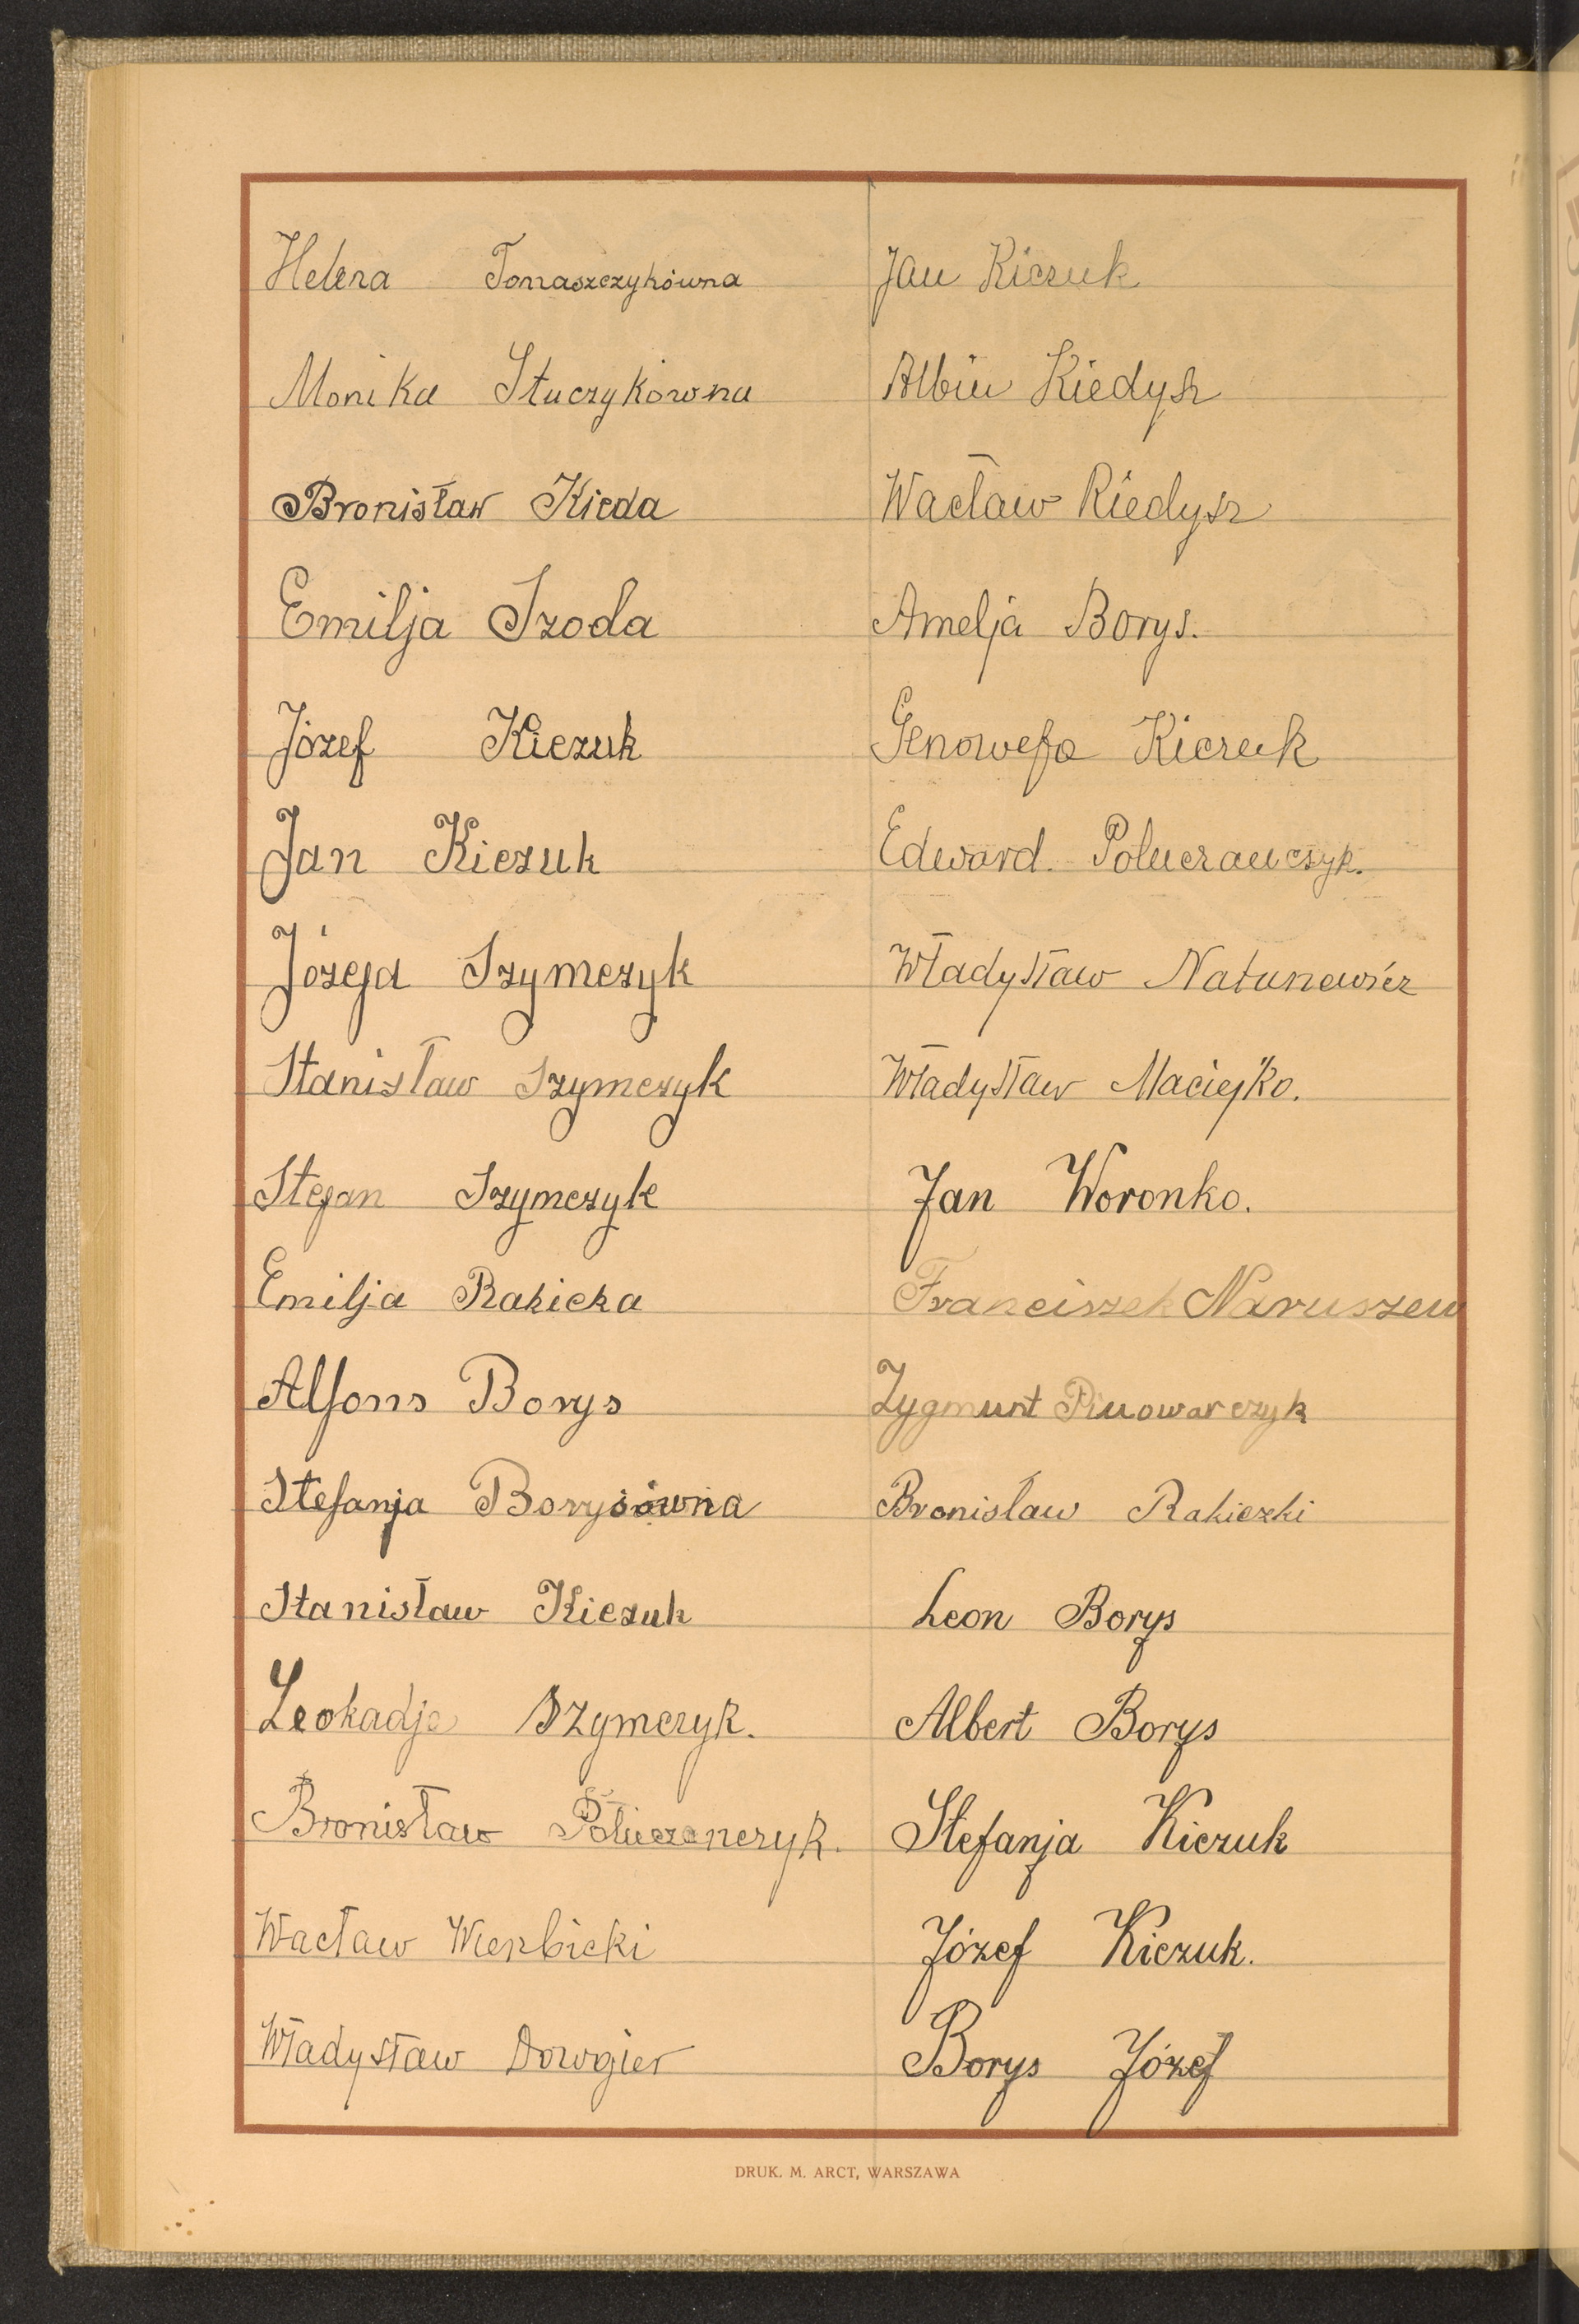 Helena Tomaszczykówna
Monika Stuczykówna
Bronisław Kieda
Emilja Szoda
Józef Kiezuk
Jan Kiezuk
Józefa Szymczyk
Stanisław Szymczyk
Stefan Szymczyk
Emilja Rakicka
Alfons Borys
Stefanja Borysówna
Stanisław Kiezuk
Leokadja Szymczyk.
Bronisław Połuczanczyk.
Wacław Wierzbicki
Władysław Dowgier
Jan Kiczuk
Albin Kiedysz
Wacław Kiedysz
Amelja Borys.
Genowefa Kiczuk
Edward. Poluczanczyk.
Władysław Natunewicz
Władysław Maciejko.
Jan Woronko.
Franciszek Naruszew
Zygmunt Piwowarczyk
Bronisław Rakiczki
Leon Borys
Albert Borys
Stefanja Kiczuk
Józef Kiczuk.
Borys Józef
DRUK. M. ARCT, WARSZAWA